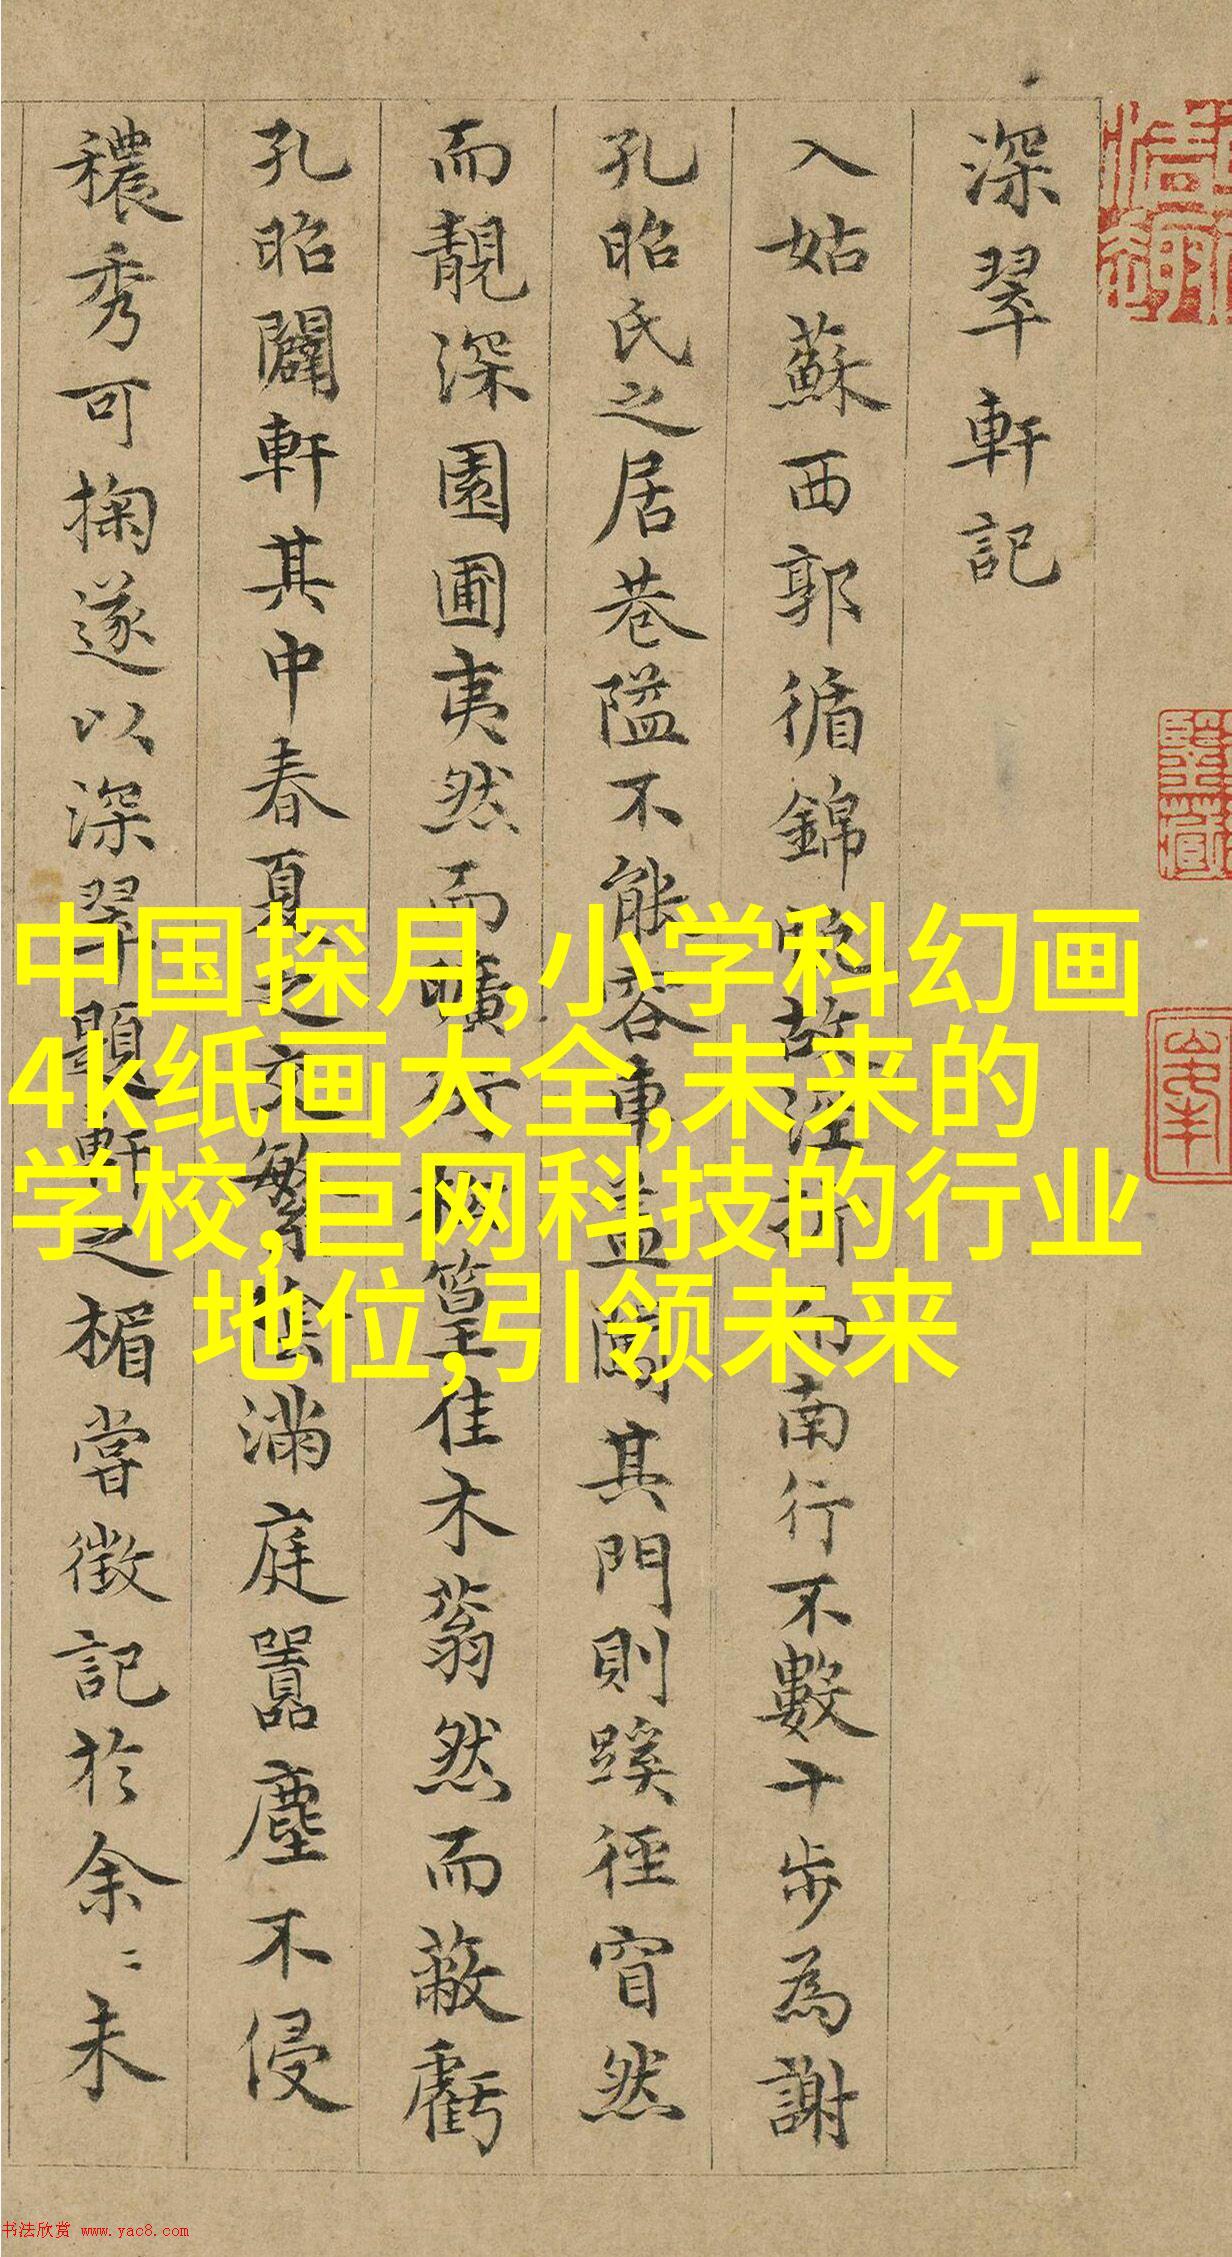 深翠軒記
入姑蘇西郭循錦 故徑折而南行不數十步為謝
孔昭氏之居巷隘不能容車蓋闔其門則蹊徑窅然
而靚深園圃夷然而曠 篁佳木蓊然而蔽虧
孔昭闢軒其中春夏之交繁陰滿庭囂塵不侵
穠秀可掬遂以深翠題軒之楣嘗徵記於余〻未
中国探月,小学科幻画
4k纸画大全,未来的
学校,巨网科技的行业
地位,引领未来
书法欣赏 www.yac8.com